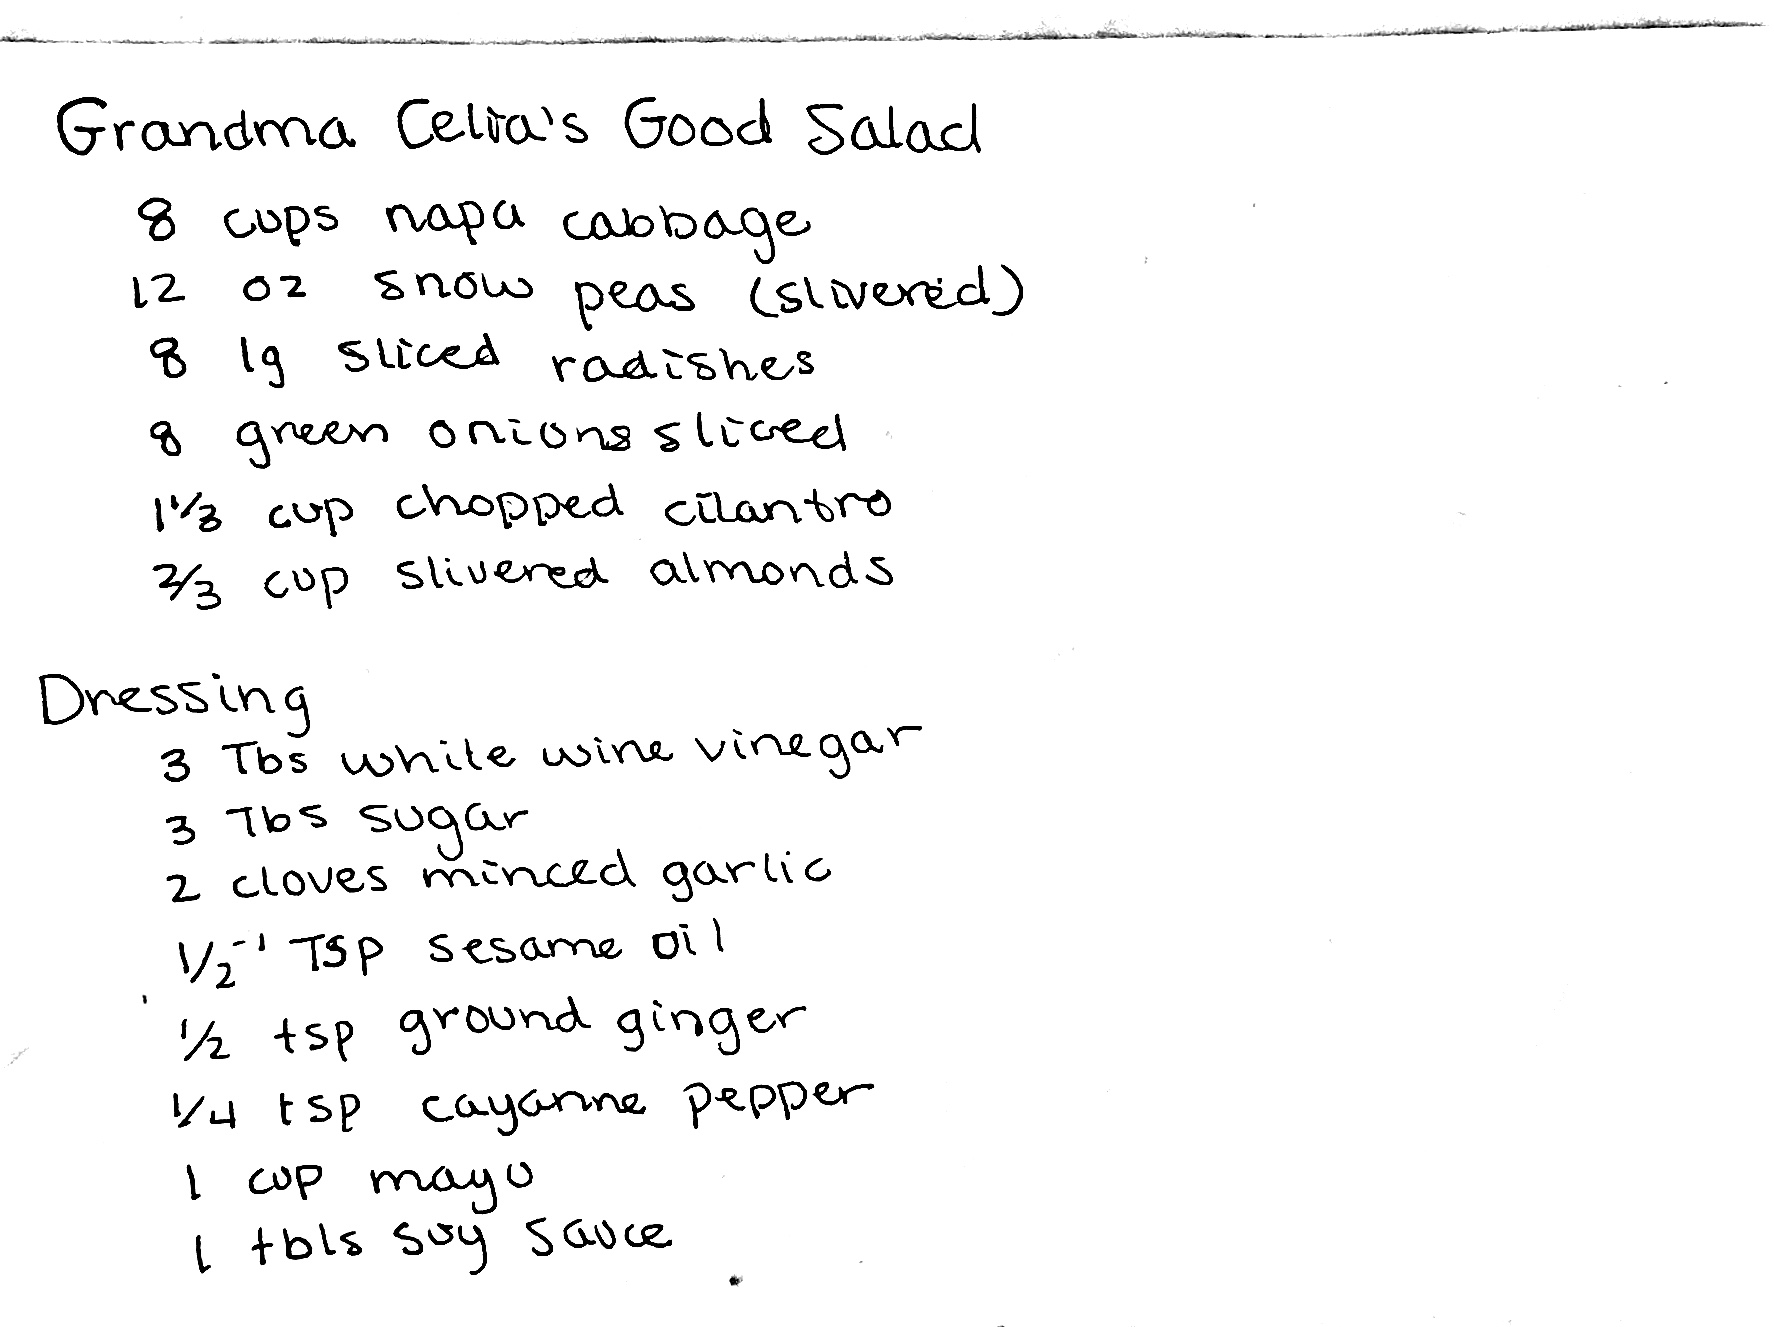 Grandma Celia's Good Salad
8 cups napa cabbage
12 oz snow peas (slivered)
8 lg sliced radishes
8 green onions sliced
1 1/3 cup chopped cilantro
2/3 cup slivered almonds
Dressing
3 Tbs white wine vinegar
3 Tbs sugar
2 cloves minced garlic
1/2-1 Tsp sesame oil
1/2 tsp ground ginger
1/4 tsp cayanne pepper
1 cup mayo
1 tbls soy sauce